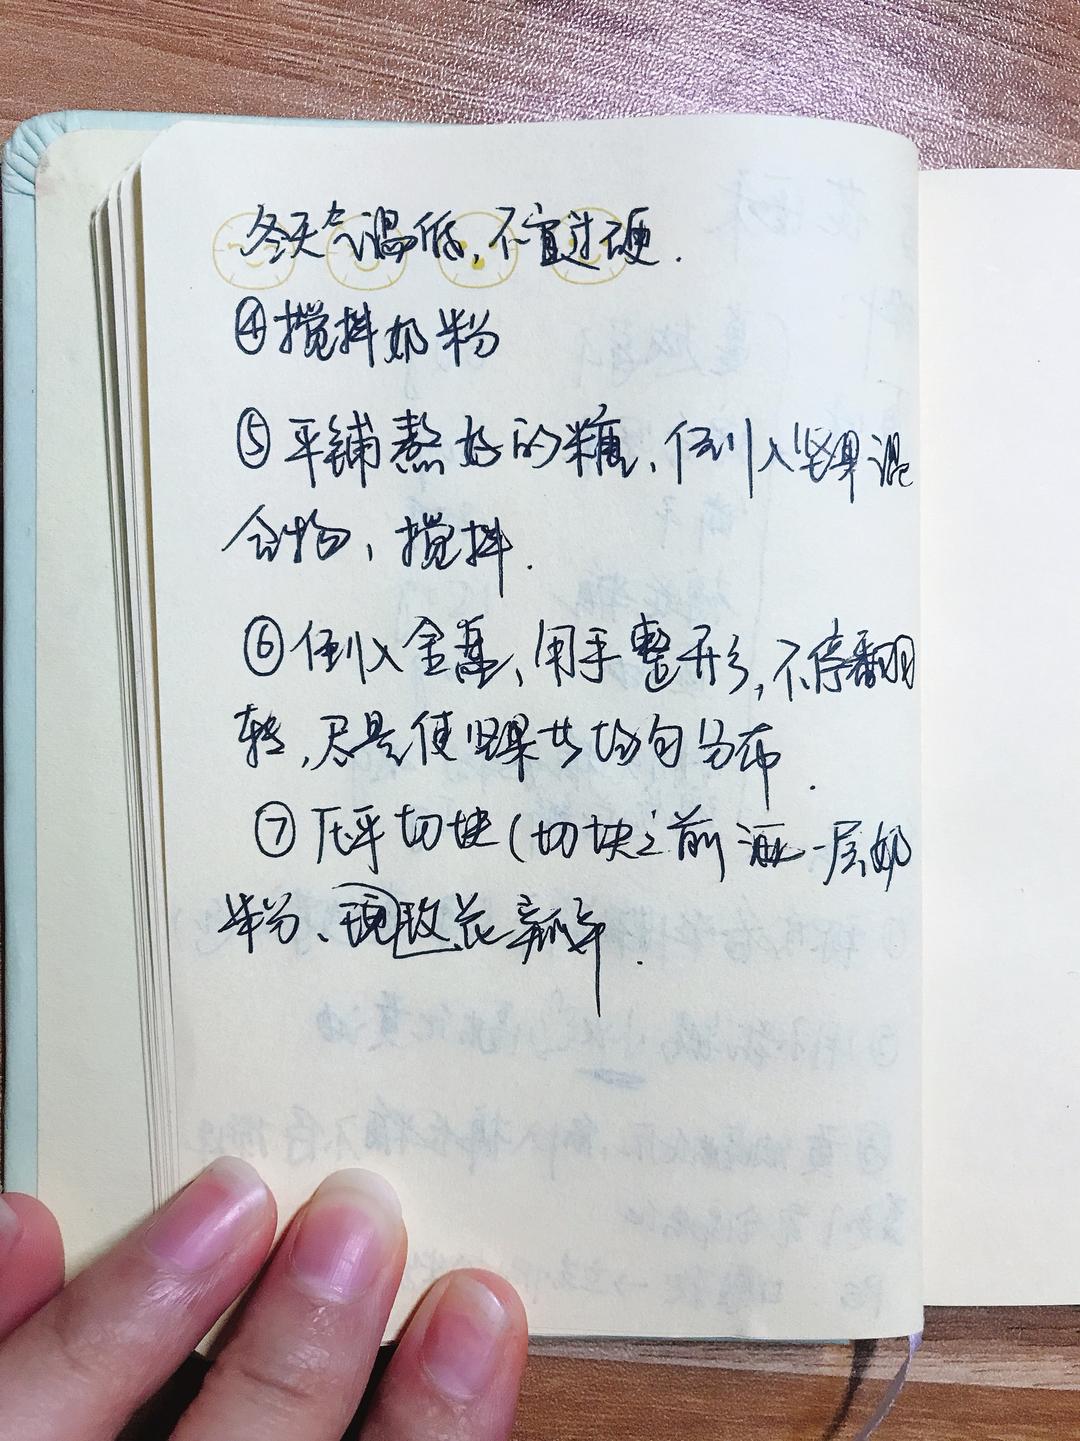 冬天气温低,不宜过硬.
④搅拌奶粉
⑤平铺熬好的糖、倒入坚果混
合物,搅拌.
⑥倒入金盘、用手整形,不停翻
转,尽量使坚果均匀分布.
⑦压平切块(切块之前洒一层奶
粉、玫花瓣等.